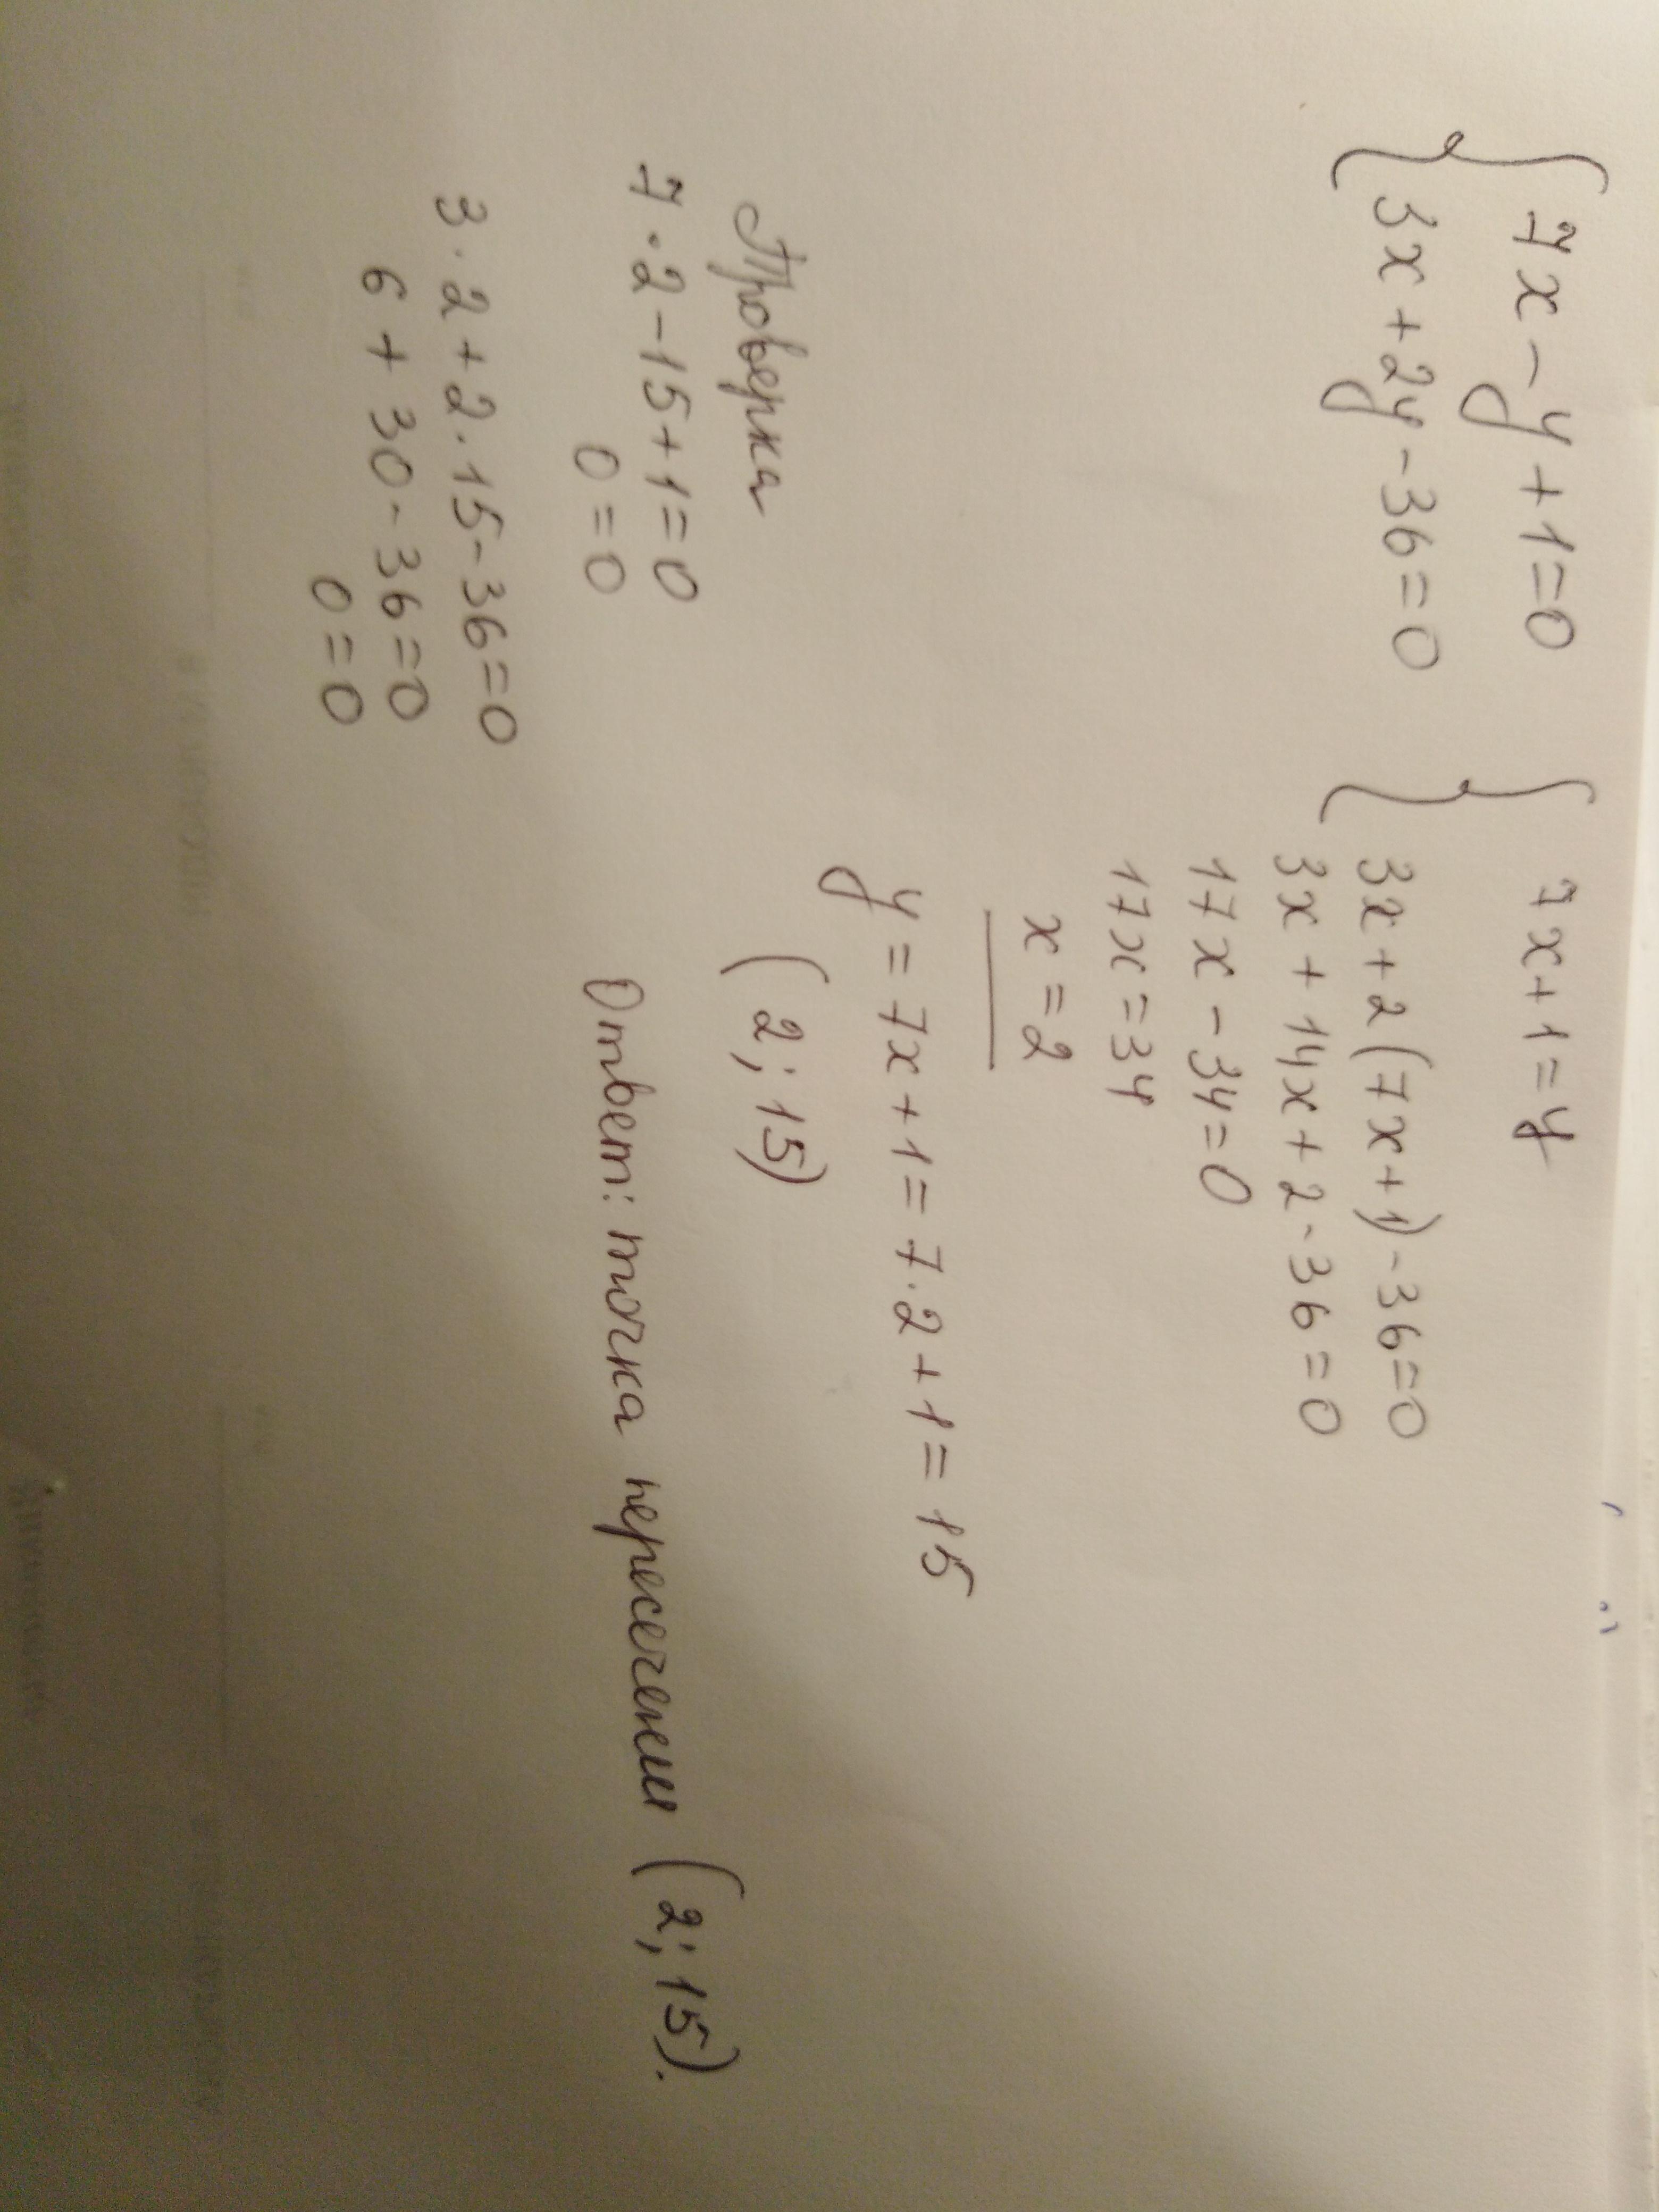 7x - y + 1 = 0
3x + 2y - 36 = 0
7x + 1 = y
3x + 2(7x + 1) - 36 = 0
3x + 14x + 2 - 36 = 0
17x - 34 = 0
17x = 34
x = 2
y = 7x + 1 = 7 · 2 + 1 = 15
(2; 15)
Проверка
7 · 2 - 15 + 1 = 0
0 = 0
3 · 2 + 2 · 15 - 36 = 0
6 + 30 - 36 = 0
0 = 0
Ответ: точка пересечении (2; 15).